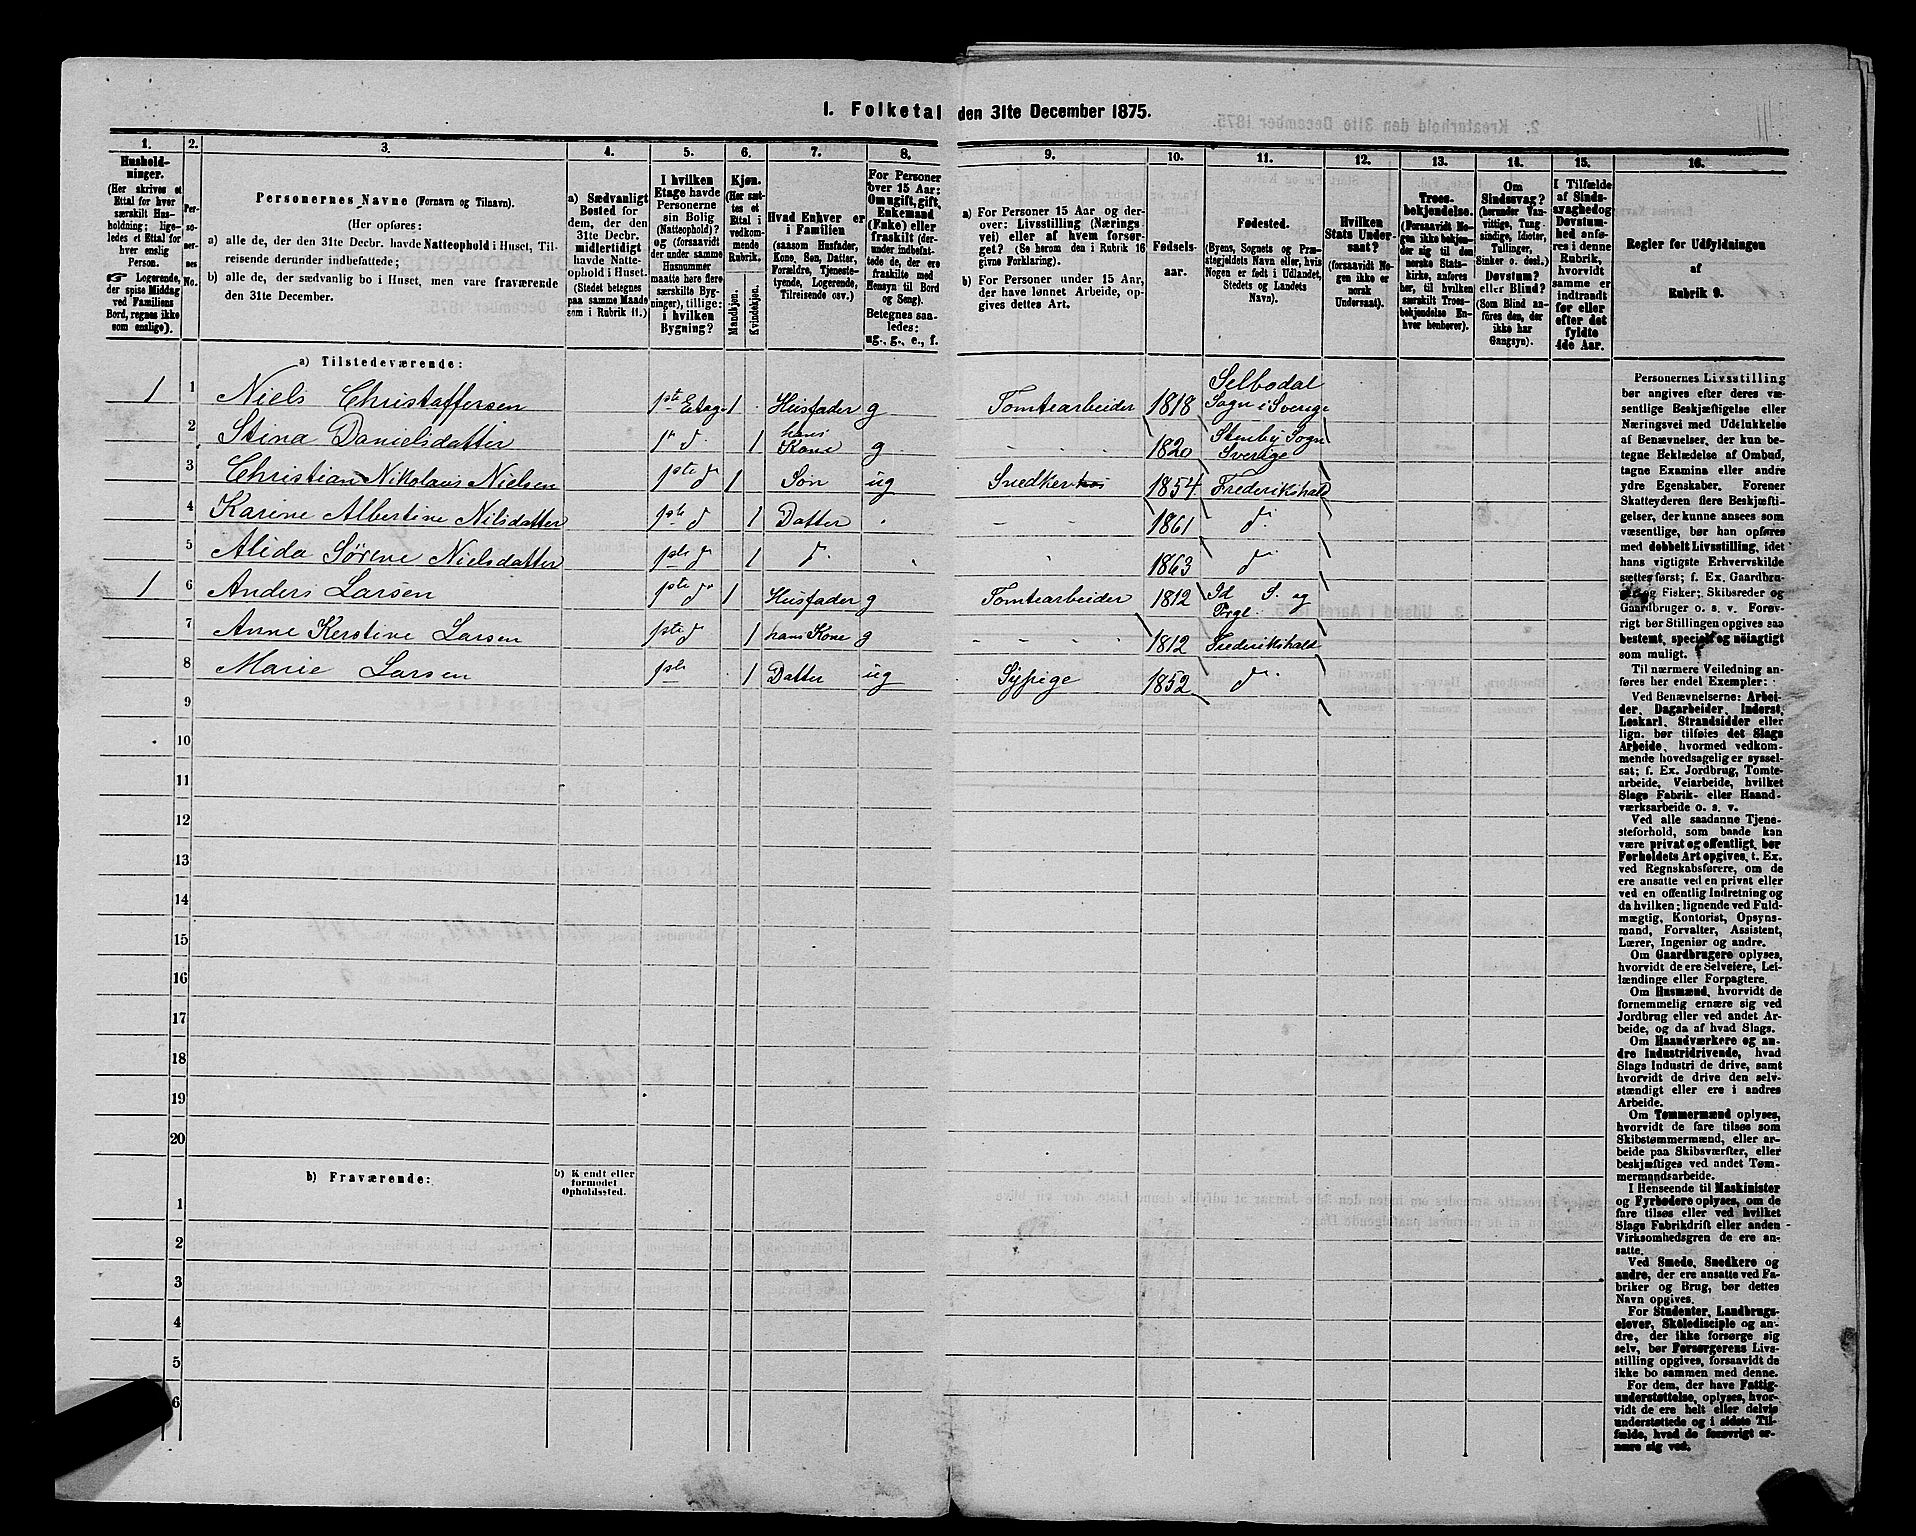 I. Folketal den 31te December 1875.
1.
Hushold-
ninger.
(Her skrives et
Ettal for hver
særskilt Hus-
holdning; lige-
ledes et Ettal for
hver enslig
Person.
☞ Logerende,
der spise Middag
ved Familiens
Bord, regnes ikke
som enslige).
2.
Per-
so-
ner-
nes
No.
3.
Personernes Navne (Fornavn og Tilnavn).
(Her opføres:
a) alle de, der den 31te Decbr. havde Natteophold i Huset, Til-
reisende derunder indbefattede;
b) alle de, der sædvanlig bo i Huset, men vare fraværende
den 31te December.
4.
a) Sædvanligt
Bosted for
dem, der den
31te Decbr.
midlertidigt
havde Natte-
ophold i Huset.
(Stedet betegnes
paa samme Maade
som i Rubrik 11.)
5.
I hvilken
Etage havde
Personerne
sin Bolig
(Natteophold)?
og (forsaavidt
der under samme
Husnummer
maatte høre flere
særskilte Byg-
ninger), tillige:
i hvilken
Bygning?
6.
Kjøn.
(Her sæt-
tes et
Ettal i
vedkom-
mende
Rubrik.
Mandkjøn.
Kvindekjøn.
7.
Hvad Enhver er
i Familien
(saasom Husfader,
Kone, Søn, Datter,
Forældre, Tjeneste-
tyende, Logerende,
Tilreisende osv.)
8.
For Personer
over 15 Aar:
Om ugift, gift,
Enkemand
(Enke) eller
fraskilt (der-
under indbefat-
tede de, der ere
fraskilte med
Hensyn til Bord
og Seng).
Betegnes saa-
ledes:
ug., g., e., f.
9.
a) For Personer 15 Aar og der-
over: Livsstilling (Nærings
vei) eller af hvem forsør-
get? (Se herom den i Rubrik 16
givne Forklaring).
b) For Personer under 15 Aar,
der have lønnet Arbeide, op-
gives dettes Art.
10.
Fødsels-
aar.
11.
Fødested.
(Byens, Sognets og Præ-
stegjeldets Navn eller, hvis
Nogen er født i Udlandet,
Stedets og Landets
Navn).
12.
Hvilken
Stats Under-
saat?
(forsaavidt No-
gen ikke er
norsk
Undersaat).
13.
Troes-
bekjendelse.
(Forsaavidt No-
gen ikke bekjen-
der sig til den
norske Stats-
kirke, anføres
her, til hvilken
særskilt Troes-
bekjendelse En-
hver henhører).
14.
Om
Sindssvag?
(herunder Van-
vittige, Tung-
sindige, Idioter,
Tullinger,
Sinker o. desl.).
Døvstum?
eller Blind?
(Som Blind an-
føres den, der
ikke har
Gangsyn).
15.
I Tilfælde
af Sinds-
svaghed og
Døvstum-
hed anfø-
res i denne
Rubrik,
hvorvidt
samme er
indtraadt
før eller
efter det
fyldte
4de Aar.
16.
Regler for Udfyldningen
af
Rubrik 9.
a) Tilstedeværende:
1 1 Niels Christoffersen 1ste Etage 1 Husfader g Tomtearbeider 1818 Selbodal Sogn i Sverige
2 Stina Danielsdatter 1 hans Kone g 1820 Stenby Sogn Sverige
3 Christian Nikolaus Nielsen 1ste d 1 Søn ug Snedker 1854 Frederikshald
4 Karine Albertine Nilsdatter 1ste d 1 Datter 1861 do
5 Alida Sørene Nielsdatter 1ste d 1 d 1863 do
1 6 Anders Larsen 1ste do 1 Husfader g Tomtearbeider 1812 Id S. og
7 Anne Kerstine Larsen 1ste d 1 hans Kone g 1812 Frederikshald
8 Marie Larsen 1ste 1 Datter ug Sypige 1852 do
9
10
11
12
13
14
15
16
17
18
19
20
b) Fraværende:
b) Kendt eller
formodet
Opholdssted.
1
2
3
4
5
6
Personernes Livsstilling
bør angives efter deres væ-
sentlige Beskjæftigelse eller
Næringsvei med Udelukkelse
af Benævnelser, der kun be-
tegne Beklædelse af Ombud,
tagne Examina eller andre
ydre Egenskaber. Forener
Skatteyderen flere Beskjæfti-
gelser, der kunne ansees som
væsentlige, bør han opføres
med dobbelt Livsstilling, idet
hans vigtigste Erhvervskilde
sættes først; f. Ex. Gaardbru-
ger og Fisker; Skibsreder og
Gaardbruger o. s. v. Forøv-
rigt bør Stillingen opgives saa
bestemt, specielt og nøiagtigt
som muligt.
Til nærmere Veiledning an-
føres her endel Exempler:
Ved Benævnelserne: Arbei-
der, Dagarbeider, Inderst,
Løskarl, Strandsidder eller
lign. bør tilføies det Slags
Arbeide, hvormed vedkom-
mende hovedsagelig er syssel-
sat; f. Ex. Jordbrug, Tomte-
arbeide, Veiarbeide, hvilket
Slags Fabrik- eller Haand-
værksarbeide o. s. v.
Ved alle saadanne Tjene-
steforhold, som baade kan
være privat og offentligt, bør
Forholdets Art opgives, t. Ex.
ved Regnskabsførere, om de
ere ansatte ved en privat eller
ved en offentlig Indretning og
da hvilken; lignende ved Fuld-
mægtig, Kontorist, Opsyns-
mand, Forvalter, Assistent,
Lærer, Ingeniør og andre.
Om Gaardbrugere oplyses,
hvorvidt de ere Selveiere, Lei-
lændinge eller Forpagtere.
Om Husmænd, hvorvidt de
fornemmelig ernære sig ved
Jordbrug eller ved andet Ar-
beide, og da af hvad Slags.
Om Haandværkere og an-
dre Industridrivende, hvad
Slags Industri de drive, samt
hvorvidt de drive den selv-
stændigt eller ere i andres
Arbeide.
Om Tømmermænd oplyses,
hvorvidt de fare tilsøs som
Skibstømmermænd, eller ar-
beide paa Skibsværfter, eller
beskjæftiges ved andet Tøm-
mermandsarbeide.
I Henseende til Maskinister
og Fyrbødere oplyses, om de
fare tilsøs eller ved hvilket
Slags Fabrikdrift eller anden
Virksomhedsgren de ere an-
satte.
Ved Smede, Snedkere og
andre, der ere ansatte ved Fa-
briker og Brug, bør dettes
Navn opgives.
For Studenter, Landbrugs-
elever, Skoledisciple og an-
dre, der ikke forsørge sig
selv, bør Forsørgerens Livs-
stilling opgives, forsaavidt de
ikke bo sammen med denne.
For dem, der have Fattig-
understøttelse, oplyses, hvor-
vidt de ere helt eller delvis
understøttede og i sidste Til-
fælde, hvad de forøvrigt er-
nære sig ved.